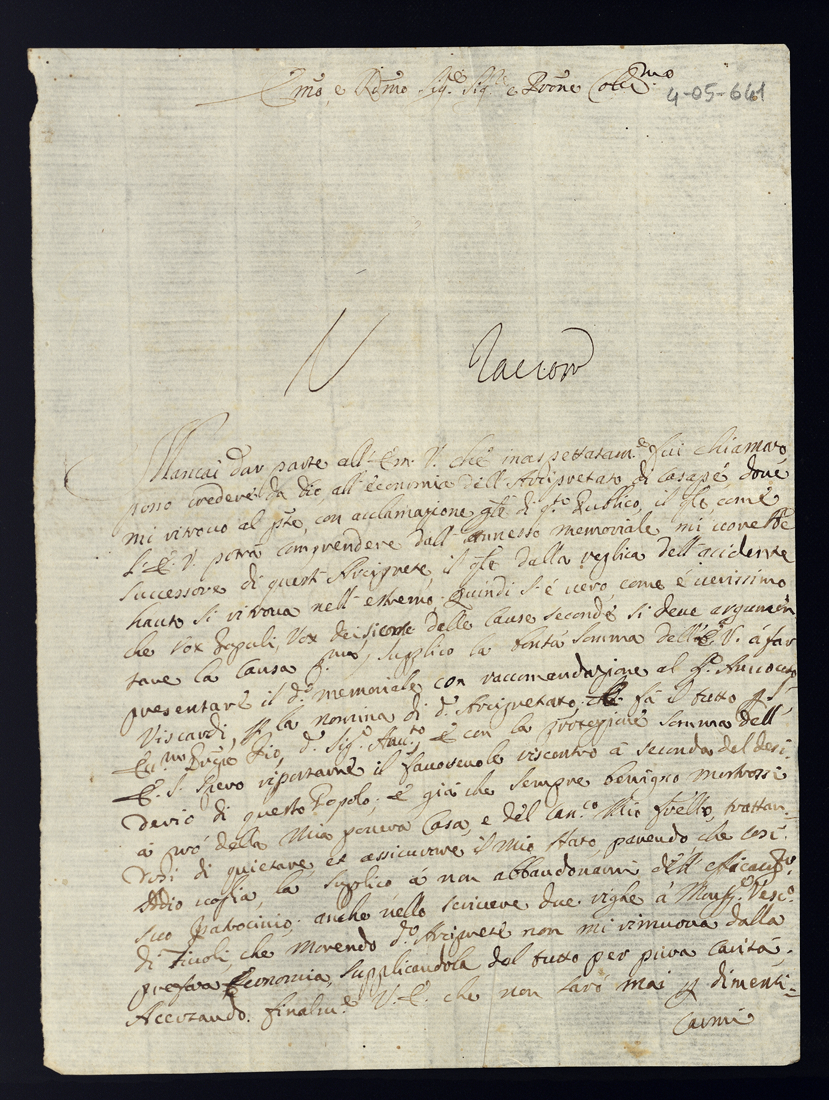 Emo, e Rdmo Sigre Sigre e Prõne Colmo 4-05-641
V
Mancai dar parte all' Em. V. che inaspettatame fui chiamato,
posso credere da dio, all' economia dell' Arcipretato di Casape, dove
mi ritrovo al pnte, con acclamazione gle di qto Publico, il qle come
l' E. V. potrà comprendere dall' annesso memoriale mi vorrebbe
successore di quest' Arciprete, il qle dalla veglia dell' accidente
hauto si ritrova nell' estremo; quindi s' è vero, come è verissimo
che Vox Populi, Vox dei, siccome delle cause seconde si deve argumen
tare la causa pma, supplico la bontà somma dell' E. V. à far
presentare il do memoriale con raccomandazione al Sr Avvocato
Viscardi, per la nomina di do Arcipretato, fà il tutto per l'
Emo Prñpe Pio, do Sigr Avvto, e con la protezione somma dell'
E. S. spero riportarne il favorevole riscontro à seconda del desi-
derio di questo Popolo; e già che sempre benigno mostrossi
à prò della Mia povera Casa, e del Canco Mio frello, trattan-
dosi di quietare, et assicurare il Mio stato, parendo che così
Iddio voglia, la supplico à non abbandonarmi dell' efficacissmo
suo patrocinio, anche nello scrivere due righe à Monsre Vesco
di Tivoli, che morendo do Arciprete non mi rimuova dalla
prefata Economia, supplicandola del tutto per pura carità.
Accertando finalme V. E. che non sarò mai per dimenti-
carmi